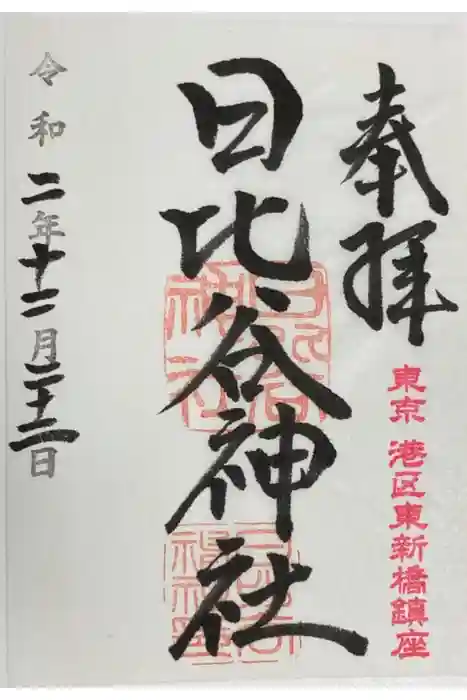 奉拝
東京 港区東新橋鎮座
日比谷神社
令和二年十二月二十二日